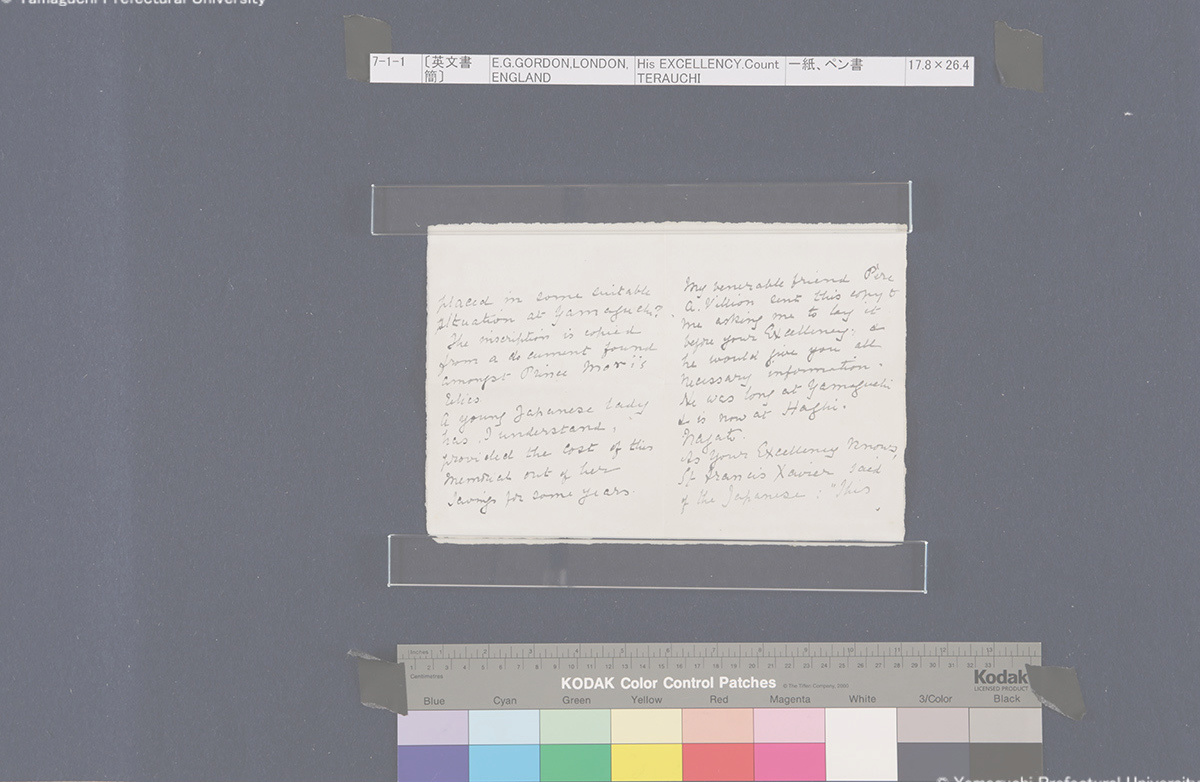 © Yamaguchi Prefectural University
7-1-1
〔英文書
簡〕
E.G.GORDON,LONDON,
ENGLAND
His EXCELLENCY.Count
TERAUCHI
一紙、ペン書
17.8×26.4
placed in some suitable
situation at Yamaguchi?
The inscription is copied
from a document found
amongst Prince Mori's
relics
A young Japanese lady
has, I understand,
provided the cost of this
memorial out of her
savings for some years.
My venerable friend Père
A. Villion sent this copy to
me asking me to lay it
before your Excellency. &
he would give you all
necessary information.
He was long at Yamaguchi
& is now at Haghi.
Nagato.
As Your Excellency knows,
St Francis Xavier said
of the Japanese: "This
Inches 1 2 3 4 5 6 7 8 9 10 11 12 13
Centimetres 1 2 3 4 5 6 7 8 9 10 11 12 13 14 15 16 17 18 19 20 21 22 23 24 25 26 27 28 29 30 31 32 33
KODAK Color Control Patches
© The Tiffen Company, 2000
Kodak
LICENSED PRODUCT
Blue Cyan Green Yellow Red Magenta White 3/Color Black
© Yamaguchi Prefectural University